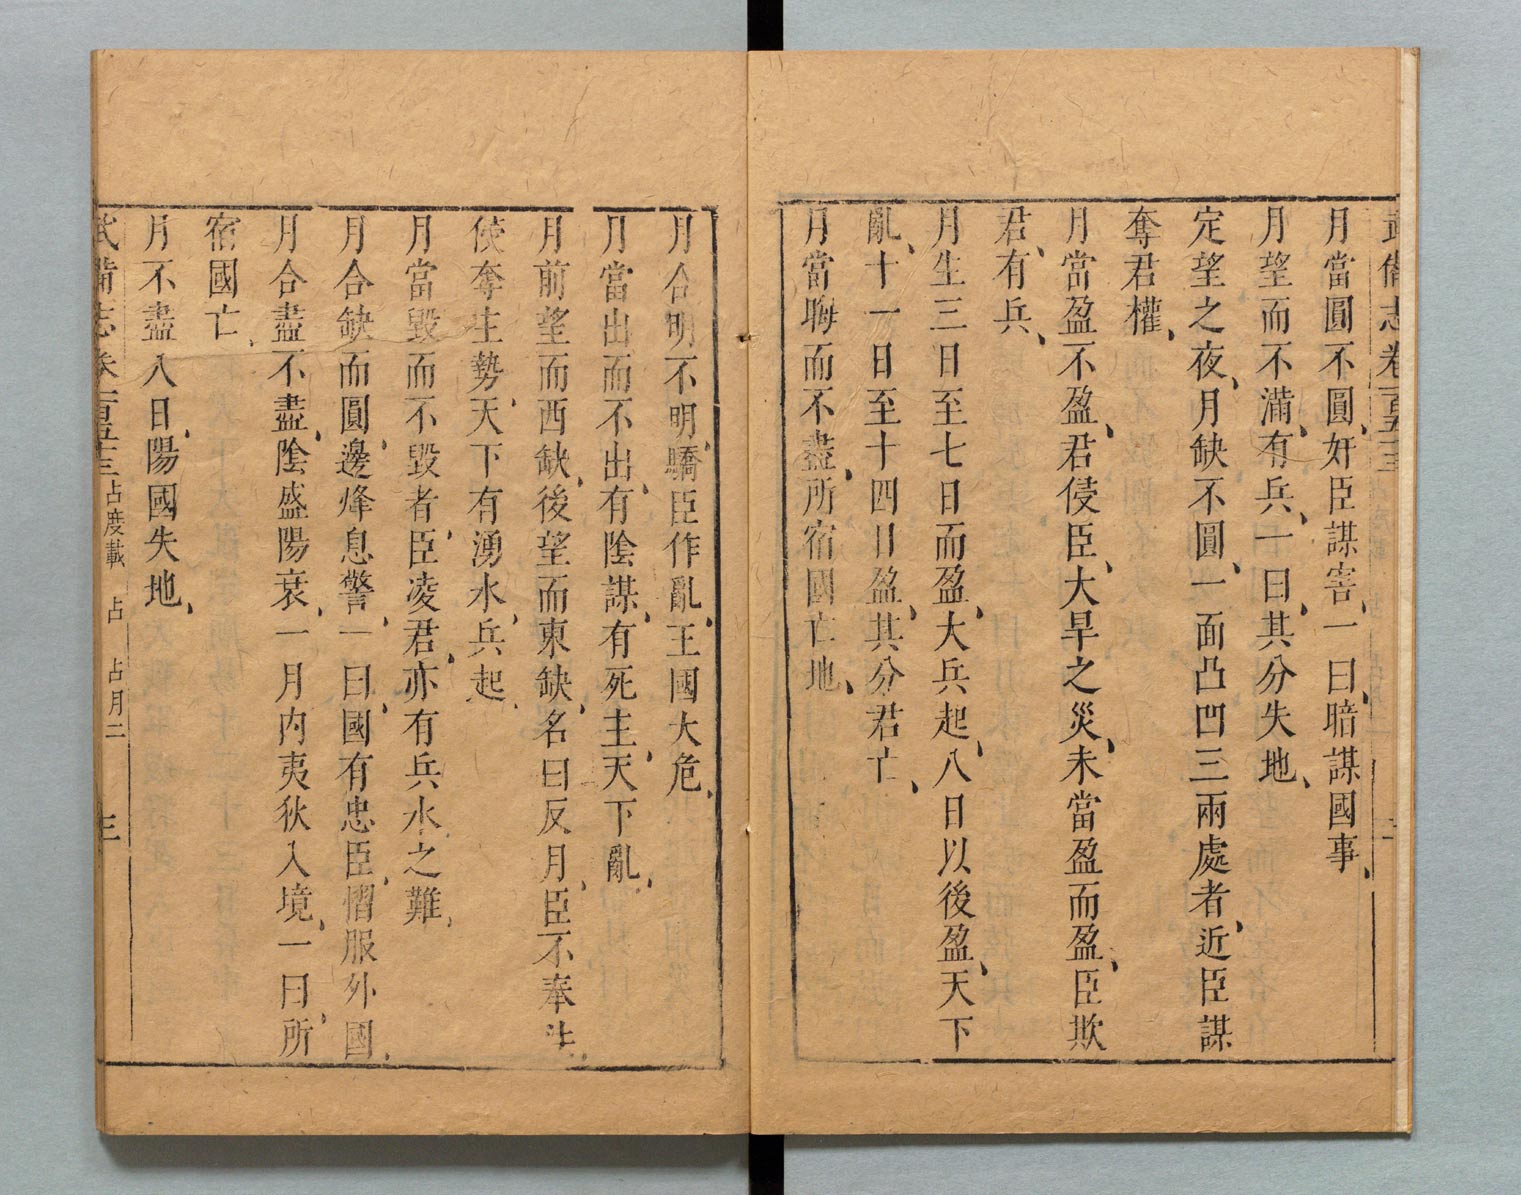 武備志卷一百五十三 二
月當圓不圓、奸臣謀害、一曰、暗謀國事、
月望而不滿、有兵、一曰、其分失地、
定望之夜、月缺不圓、一面凸凹三兩處者、近臣謀
奪君權、
月當盈不盈、君侵臣、大旱之災、未當盈而盈、臣欺
君、有兵、
月生三日至七日而盈、大兵起、八日以後盈、天下
亂、十一日至十四日盈、其分君亡、
月當晦而不盡、所宿國亡地、
月合明不明、驕臣作亂、王國大危、
月當出而不出、有陰謀、有死主、天下亂、
月前望而西缺、後望而東缺、名曰反月、臣不奉主、
侵奪主勢、天下有湧水、兵起、
月當毀而不毀者、臣凌君、亦有兵水之難、
月合缺而圓、邊烽息警、一曰、國有忠臣、慴服外國、
月合盡不盡、陰盛陽衰、一月内夷狄入境、一曰、所
宿國亡、
月不盡入日、陽國失地、
武備志卷一百五十三 占度載 占 占月二 三